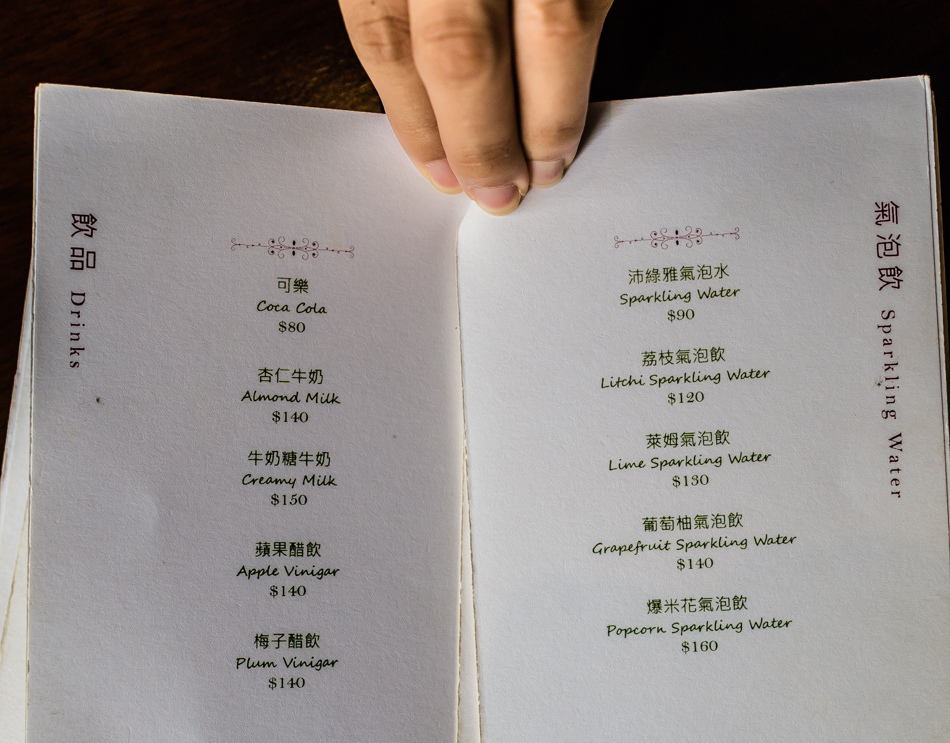 飲品 Drinks
可樂
Coca Cola
$80
杏仁牛奶
Almond Milk
$140
牛奶糖牛奶
Creamy Milk
$150
蘋果醋飲
Apple Vinigar
$140
梅子醋飲
Plum Vinigar
$140
氣泡飲 Sparkling Water
沛綠雅氣泡水
Sparkling Water
$90
荔枝氣泡飲
Litchi Sparkling Water
$120
萊姆氣泡飲
Lime Sparkling Water
$130
葡萄柚氣泡飲
Grapefruit Sparkling Water
$140
爆米花氣泡飲
Popcorn Sparkling Water
$160